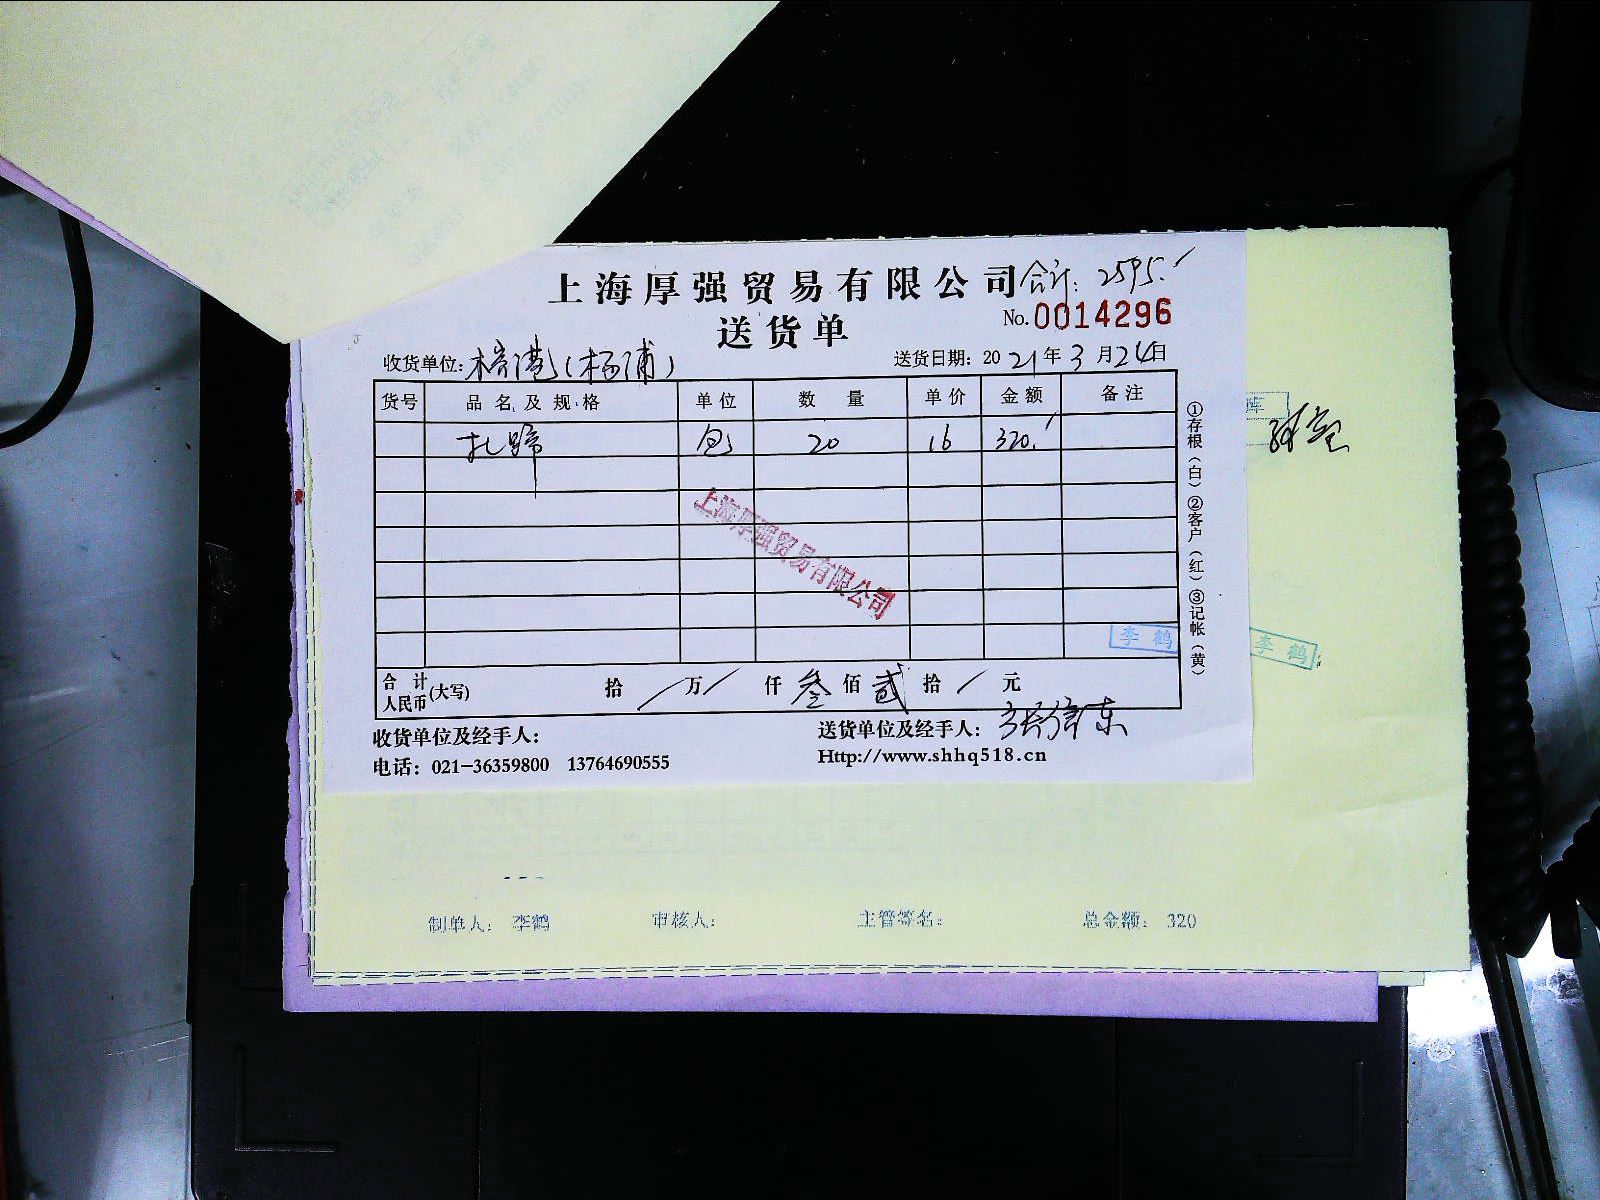 上海厚强贸易有限公司 合计: 2595.
送货单 No.0014296
收货单位: (杨浦) 送货日期: 2021年3月24日
货号 品名及规格 单位 数量 单价 金额 备注
扎蹄 包 20 16 320.
上海厚强贸易有限公司
李鹤
李鹤
合计人民币(大写) 拾 / 万 / 仟 叁 佰 贰 拾 / 元
收货单位及经手人: 送货单位及经手人:
电话: 021-36359800 13764690555 Http://www.shhq518.cn
①存根(白)②客户(红)③记帐(黄)
制单人: 李鹤 审核人: 主管签名: 总金额: 320